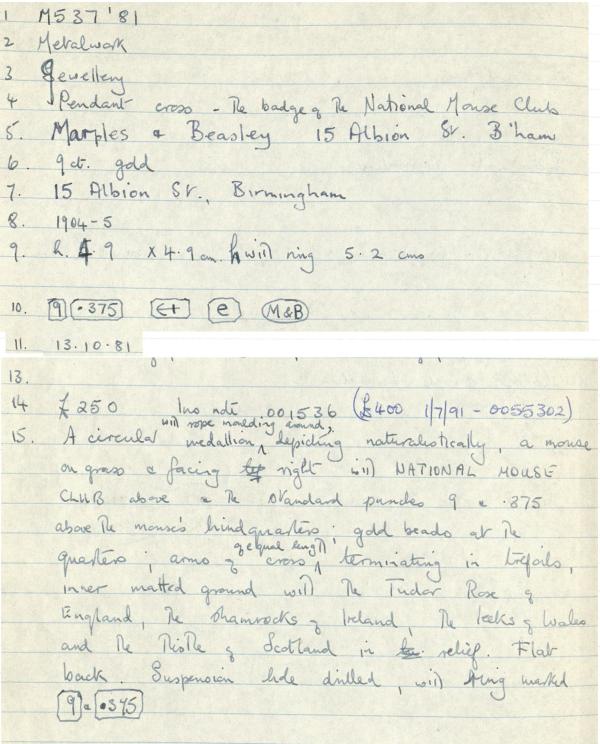 1 M537'81
2 Metalwork
3 Jewellery
4 Pendant cross - The badge of The National Mouse Club
5. Marples & Beasley 15 Albion St. B'ham
6. 9ct. gold
7. 15 Albion St., Birmingham
8. 1904-5
9. h. 4.9 x 4.9 cm. h with ring 5.2 cms
10. 9 .375 e M&B
11. 13.10.81
13.
14 £250 Ins note 001536 (£400 1/7/91 - 0055302)
with rope moulding around,
15. A circular medallion, depicting naturalistically, a mouse
on grass & facing right with NATIONAL MOUSE
CLUB above & The standard punches 9 & .375
above The mouse's hindquarters; gold beads at The
of equal length
quarters; arms of cross terminating in trefoils,
inner matted ground with The Tudor Rose of
England, The Shamrocks of Ireland, The leeks of Wales
and The Thistle of Scotland in relief. Flat
back. Suspension hole drilled, with ring marked
9 & .375